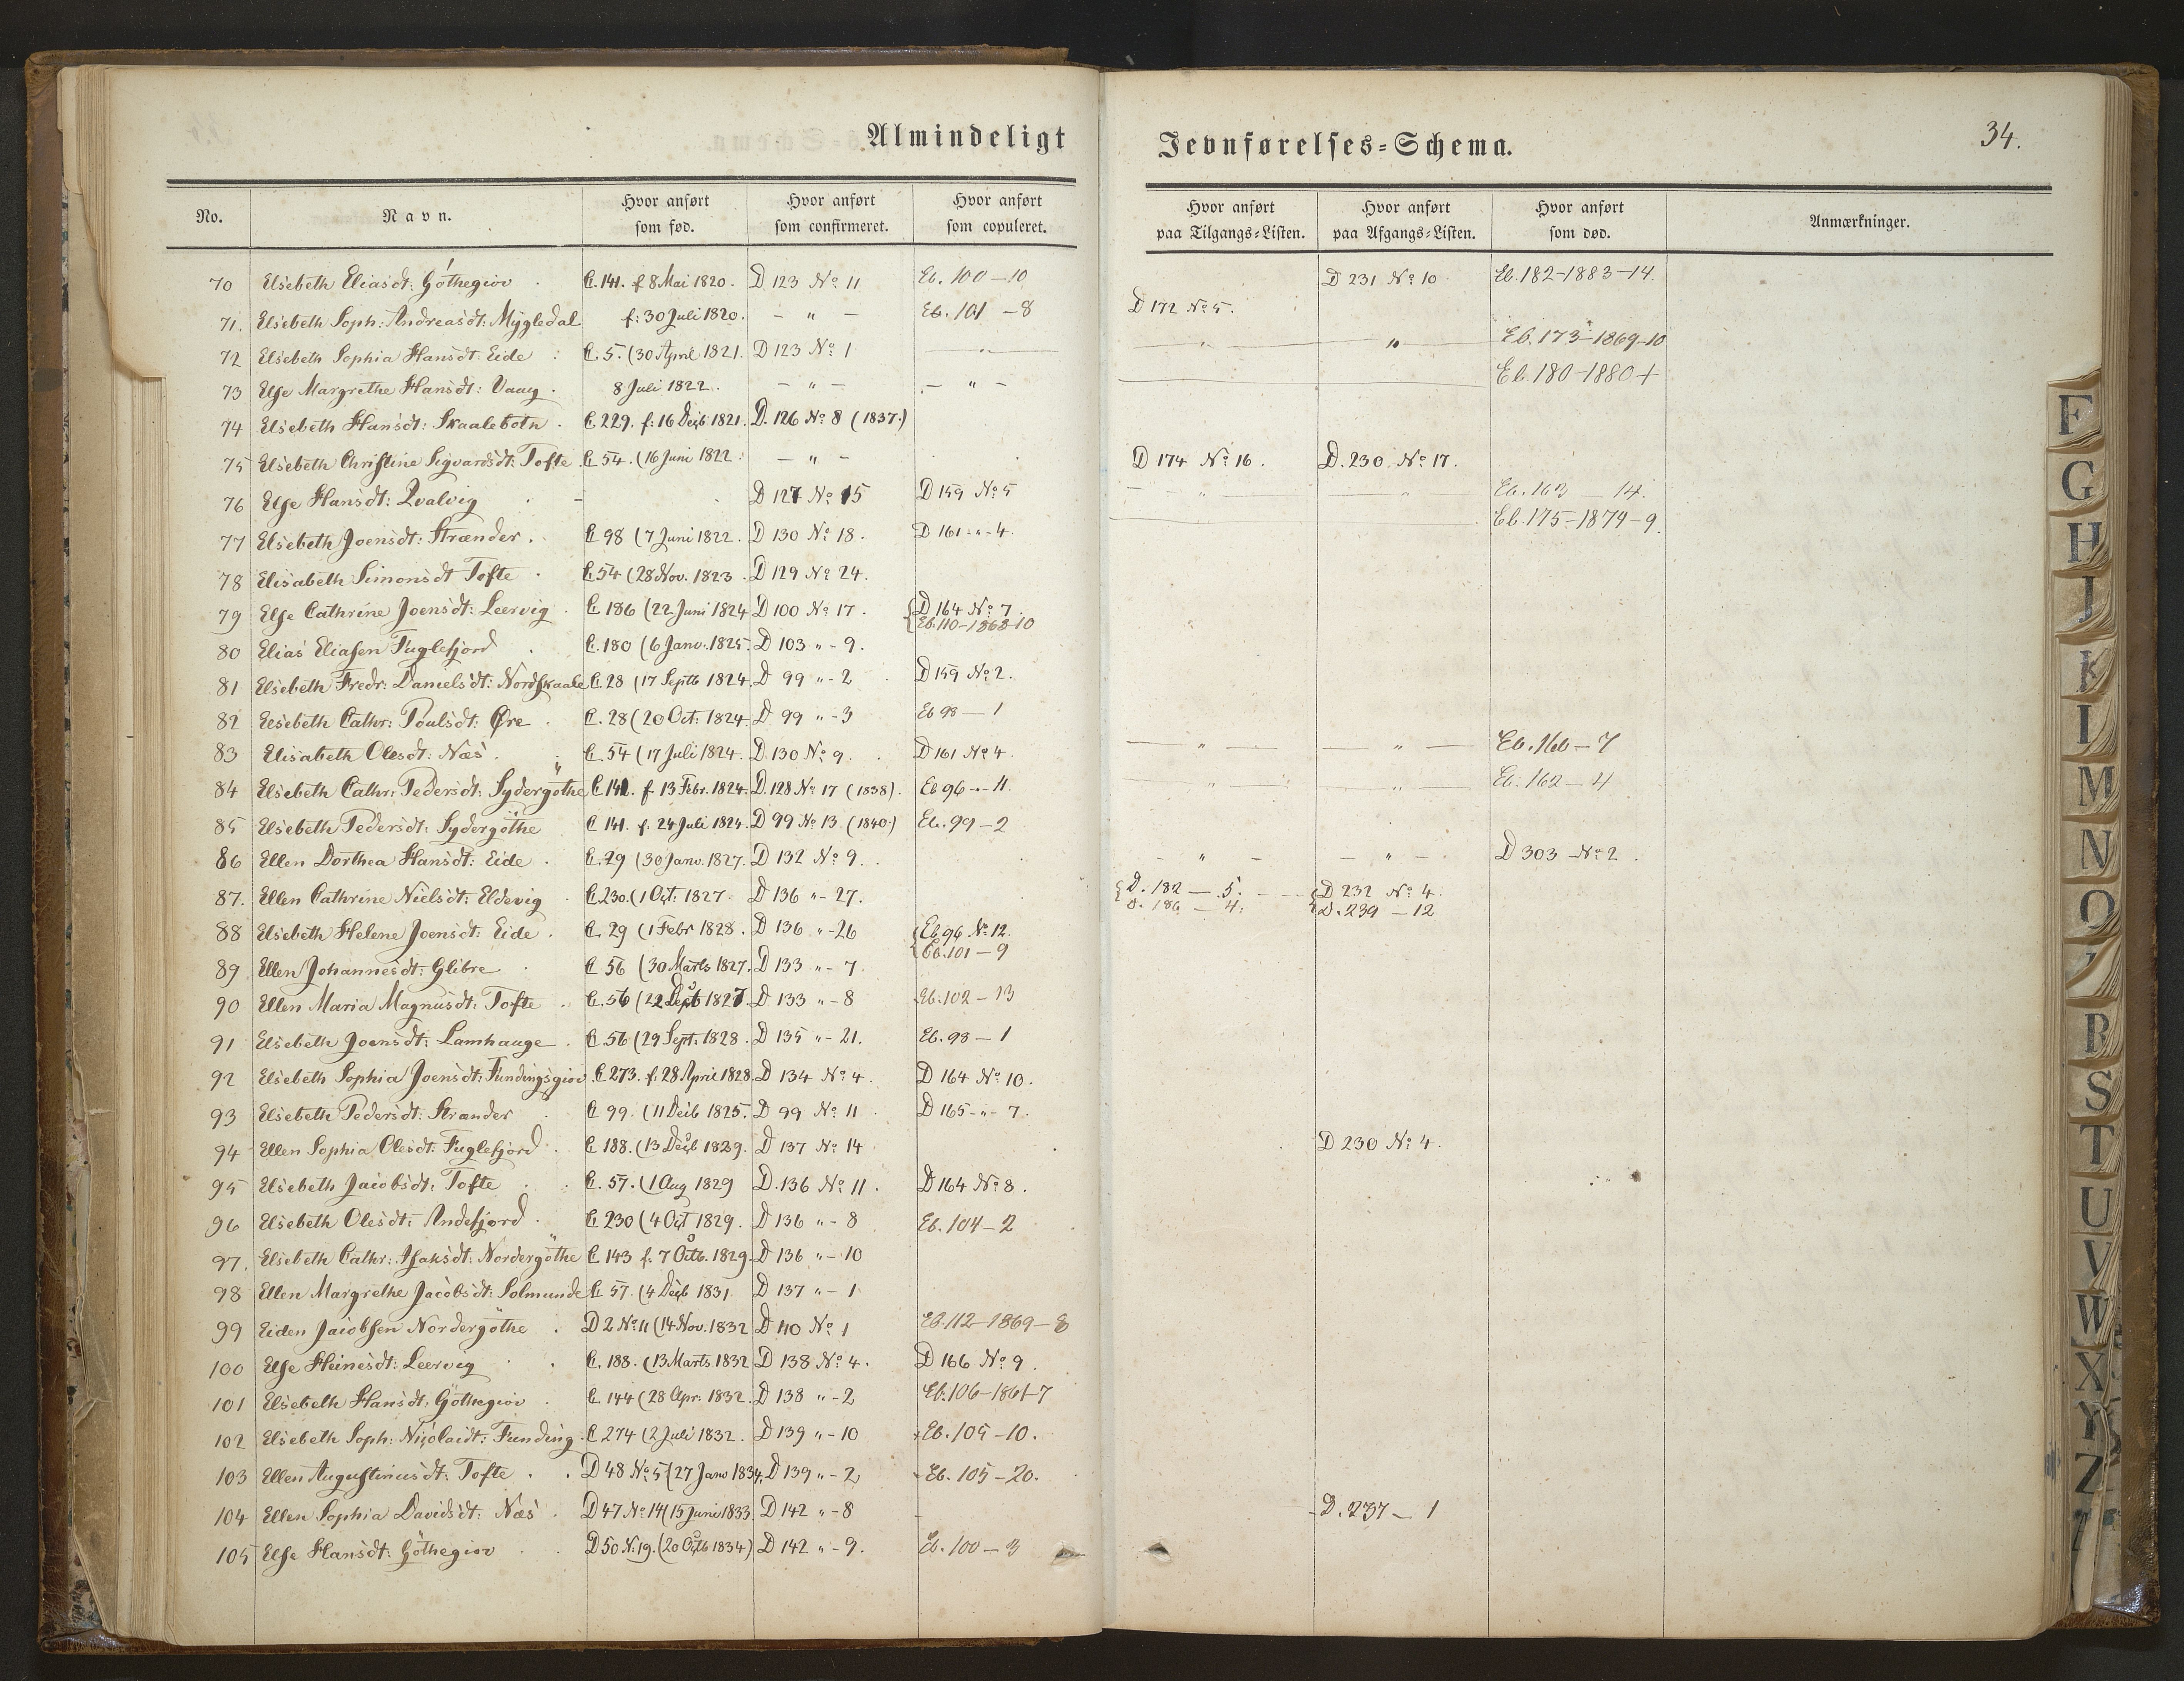 Almindeligt Jevnførelses=Schema. 34.
No. Navn. Hvor anført som fød. Hvor anført som confirmeret. Hvor anført som copuleret. Hvor anført paa Tilgangs=Listen. Hvor anført paa Afgangs=Listen. Hvor anført som død. Anmærkninger.
70 Elsebeth Eliasdt: Göthegiov C. 141. f 8 Mai 1820. D 123 No 11 Eb. 100 – 10 D 231 No 10 Eb. 182-1883-14.
71. Elsebeth Soph: Andreasdt: Mygledal f: 30 Juli 1820. – " – Eb. 101 – 8 D 172 No 5.
72 Elsebeth Sophia Hansdt: Eide C. 5. (30 April 1821. D 123 No 1 " — " — — " — Eb. 173-1869-10
73 Else Margrethe Hansdt: Vaag. 8 Juli 1822. – " – – " – Eb. 180-1880 +
74 Elsebeth Hansdt: Skaalebotn. C 229. f: 16 Decb 1821. D. 126 No 8 (1837.)
75 Elsebeth Christine Sigvardsdt: Tofte. C 54. (16 Juni 1822. – " – D 174 No 16. D. 230 No 17.
76 Else Hansdt: Qvalvig – D 127 No 15 D 159 No 5 — " — — " — Eb. 163 — 14.
77 Elsebeth Joensdt: Strænder. C 98 (7 Juni 1822. D 130 No 18. D 161 - " - 4. Eb. 175-1879-9.
78 Elisabeth Simonsdt Tofte C 54 (28 Nov. 1823. D 129 No 24.
79 Else Cathrine Joensdt: Leervig. C 186 (22 Juni 1824 D 100 No 17. { D 164 No 7.
Eb. 110-1868-10
80 Elias Eliasen Fuglefjord C. 180 (6 Janv. 1825. D 103 " - 9.
81 Elsebeth Fredr: Danielsdt: Nordskaale C. 28 (17 Septb 1824 D 99 " - 2 D 159 No 2.
82 Elsebeth Cathr: Poulsdt: Øre C. 28 (20 Oct: 1824. D 99 " - 3 Eb 98 — 1
83 Elisabeth Olesdt: Næs. C. 54 (17 Juli 1824. D 130 No 9. D 161 No 4. — " — — " — Eb. 160 – 7
84 Elsebeth Cathr: Pedersdt: Sydergöthe C 141. f 13 Febr. 1824. D. 128 No 17 (1838). Eb 96 - - 11. — " — — " — Eb. 162 — 4
85 Elsebeth Pedersdt: Sydergöthe C 141. f. 24 Juli 1824. D 99 No 13. (1840.) Eb. 99 – 2
86 Ellen Dorthea Hansdt: Eide. C. 29 (30 Janv. 1827. D 132 No 9. – " – – " – D 303 No 2.
87. Ellen Cathrine Nielsdt: Eldevig C. 230. (1 Oct: 1827. D 136 " - 27. { D. 182 — 5. { D 232 No 4.
D. 186 — 4. D. 239 — 12
88 Elsebeth Helene Joensdt: Eide. C. 29 (1 Febr 1828. D 136 " - 26 { Eb 96 No 12.
Eb. 101 – 9
89. Ellen Johannesdt: Glibre C 56 (30 Marts 1827. D 133 " - 7.
90 Ellen Maria Magnusdt: Tofte C. 56 (22 Septb 1827. D 133 " - 8 Eb. 102 – 13
91 Elsebeth Joensdt: Lamhauge. C. 56 (29 Sept. 1828. D 135 " - 21. Eb. 98 – 1
92 Elsebeth Sophia Joensdt: Fundingsgiov. C 273. f: 28 April 1828. D 134 No 4. D 164 No 10.
93 Elsebeth Pedersdt: Strænder C 99. (11 Decb 1825. D 99 No 11 D 165 - " - 7.
94 Ellen Sophia Olesdt: Fuglefjord. C 188. (13 Decb 1829. D 137 No 14 D 230 No 4.
95 Elsebeth Jacobsdt: Tofte C. 57. (1 Aug 1829 D. 136 No 11. D 164 No 8.
96 Elsebeth Olesdt: Andefjord. C 230 (4 Oct 1829. D 136 " - 8 Eb. 104 – 2
97. Elsebeth Cathr: Isaksdt: Nordergöthe C 143 f. 7 Octb. 1829. D 136 " - 10
98 Ellen Margrethe Jacobsdt: Solmunde C 57. (4 Decb 1831. D 137 " - 1
99 Eiden Jacobsen Nordergöthe. D 2 No 11 (14 Nov. 1832 D 110 No 1 Eb. 112-1869-8
100 Else Heinesdt: Leervig C. 188. (13 Marts 1832 D 138 No 4. D 166 No 9.
101 Elsebeth Hansdt: Göthegiov C 144 (28 Apr. 1832. D 138 " - 2 Eb. 106-1861-7
102 Elsebeth Soph: Nicolaidt: Funding. C 274 (2 Juli 1832. D 139 " - 10 Eb. 105 – 10.
103 Ellen Augustinusdt: Tofte. D 48 No 5 (27 Janv 1834. D 139 " - 2 Eb. 105 – 20.
104 Ellen Sophia Davidsdt: Næs. D 47 No 14 (15 Juni 1833. D 142 " - 8 D. 237 – 1
105 Else Hansdt: Göthegiov D 50 N: 19. (20 Octb 1834) D 142 " - 9. Eb. 100 – 3
F
G
H
J
K
I
M
N
O
R
S
T
U
V
W
X
Y
Z